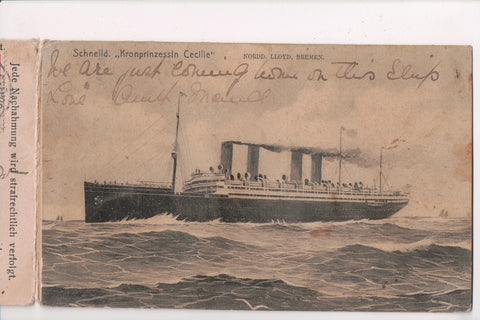 Schnelld. „Kronprinzessin Cecilie" NORDD. LLOYD, BREMEN.
We are just coming home on this Ship
Love Aunt
Jede Nachahmung wird strafrechtlich verfolgt.